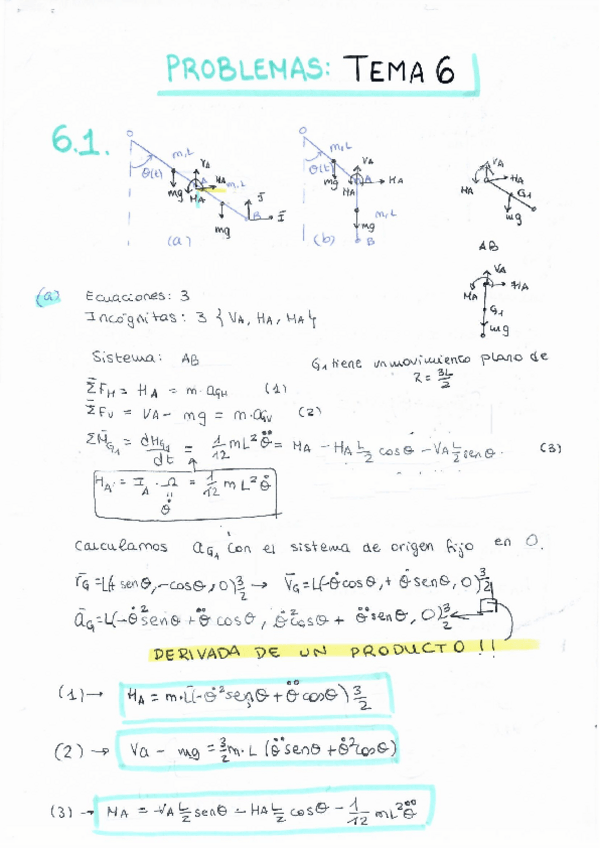 PROBLEMAS: TEMA 6
6.1.
O
θ(t)
m,L
VA
A
HA
m,L
MA
mg
mg
J
B
I
(a)
O
θ(t)
m,L
VA
A
HA
MA
mg
m,L
mg
B
(b)
VA
HA
MA
G1
mg
AB
VA
HA
MA
G1
mg
(a) Ecuaciones: 3
Incógnitas: 3 { VA, HA, MA }
Sistema: AB
G1 tiene un movimiento plano de
R = 3L/2
ΣF̄H = HA = m·aGH (1)
ΣF̄V = VA - mg = m·aGV (2)
ΣM̄G1 = dHG1/dt = 1/12 mL² θ̈ = MA - HA L/2 cosθ - VA L/2 senθ. (3)
HA = IA · Ω = 1/12 m L² θ̈
θ̇
Calculamos aG1 con el sistema de origen fijo en O.
r̄G = L(+senθ, -cosθ, 0) 3/2 → V̄G = L(-θ̇cosθ, + θ̇senθ, 0) 3/2
āG = L(-θ̇²senθ + θ̈ cosθ, θ̇²cosθ + θ̈senθ, 0) 3/2
DERIVADA DE UN PRODUCTO!!
(1) → HA = m·L(-θ̇²senθ + θ̈cosθ) 3/2
(2) → Va - mg = 3/2 m·L (θ̈senθ + θ̇²cosθ)
(3) → MA = -VA L/2 senθ - HA L/2 cosθ - 1/12 mL²θ̈